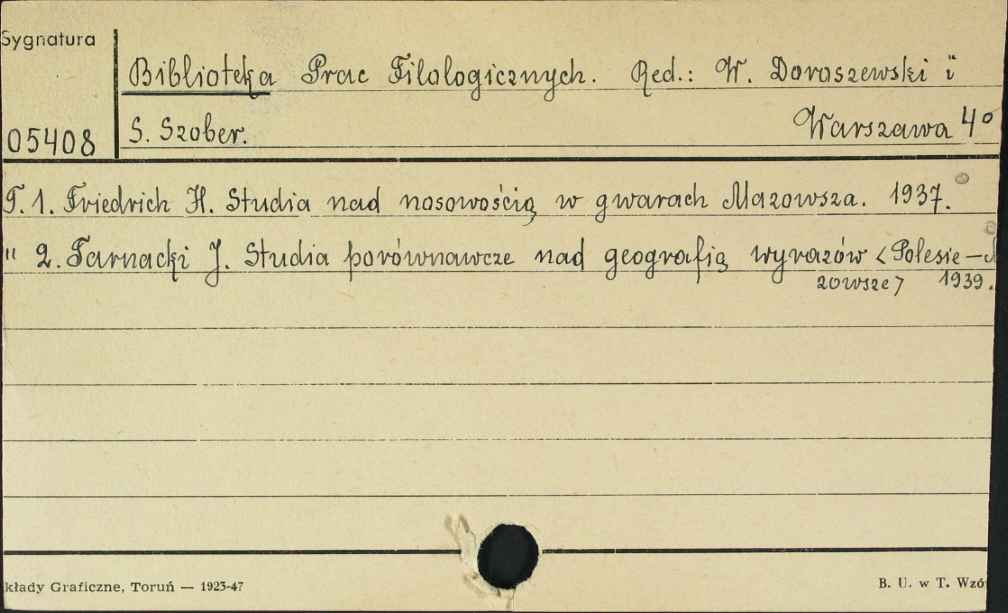 Sygnatura
Biblioteka Prac Filologicznych. Red.: W. Doroszewski i
05408 S. Szober. Warszawa 4°
T. 1. Friedrich H. Studia nad nosowością w gwarach Mazowsza. 1937.
" 2. Tarnacki J. Studia porównawcze nad geografią wyrazów <Polesie–
zowsze> 1939.
kłady Graficzne, Toruń — 1923-47 B. U. w T. Wzó